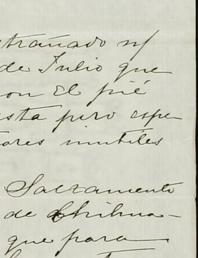 trañado n/
de Julio que
con El pié
esta pero espe
tores inutiles
Sacramento
de Chihua-
que para